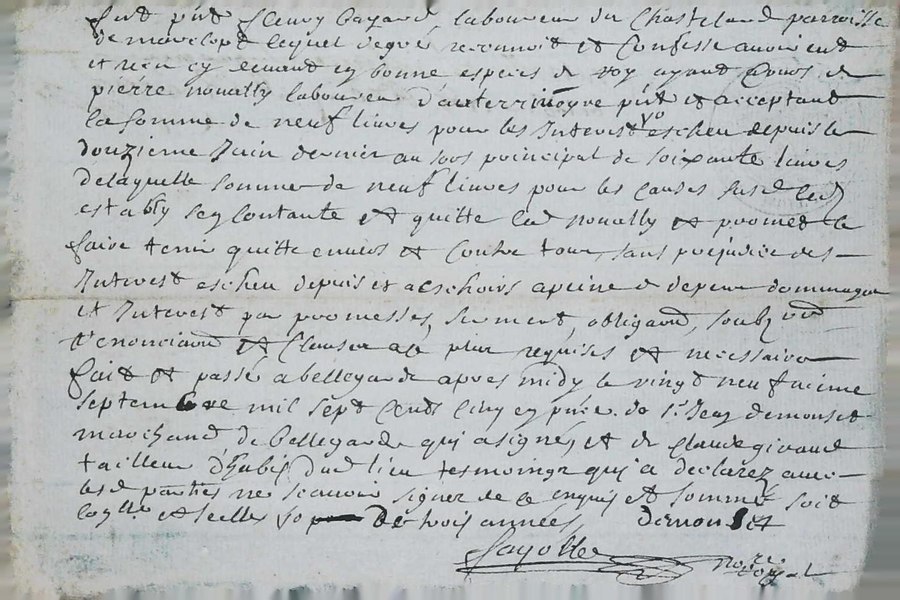 fut pnt fleury bayard laboureur du Chastelard parroisse
de lequel de gré reconnoit et Confesse avoir eut
et receu cy devant en bonne especes de roy ayant Cours de
pierre noually laboureur d'auterrinoyre pnt et acceptant
la somme de neuf livres pour les Interest escheu depuis le
douzieme Juin dernier au sors principal de soixante livres
de laquelle somme de neuf livres pour les causes susd led
estably sen Contante et quitte led noually et promet le
faire tenir quitte envers et Contre tous, sans prejudice des
Interest escheu depuis et a eschoirs a peine de depens dommages
et Interest par promesses, serment, obligaõn, soubz
renonciaõn et Clauses a ce plus requises et necessaires
fait et passé a bellegarde apres midy le vingt neufvieme
septembre mil sept Cents Cinq en pnce de Sr Jean demonset
marchand de bellegarde qui a signé, et de Claude giraud
tailleur d'habis dud lieu tesmoings qui a declarez avec
lesd parties ne scavoir signer de ce enquis et sommé soit
et seelles de trois années demonset
fayolle no.re royal